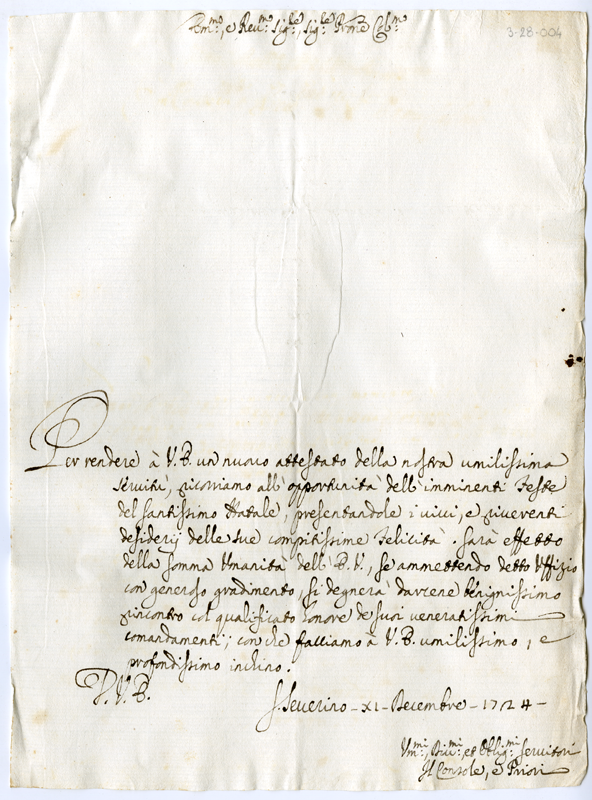 Em.mo, e Reu.mo Sig.re, Sig.re Prone Col.mo
3-28-004
Per rendere à V.E. un nuouo attestato della nostra umilissima
seruitù, ricorriamo all'opportunità dell'imminenti Feste
del santissimo Natale, presentandole i uiui, e riuerenti
desiderij delle sue compitissime Felicità. Sarà effetto
della somma Umanità dell'E.V., se ammettendo detto Uffizio
con generoso gradimento, si degnerà darcene benignissimo
rincontro col qualificato honore de suoi veneratissimi
comandamenti; con che facciamo à V.E. umilissimo, e
profondissimo inchino.
D.V.E.
S. Seuerino - XI - Decembre - 1724 -
Um.mi, Diu.mi, et Oblig.mi Seruitori
Il Console, e Priori